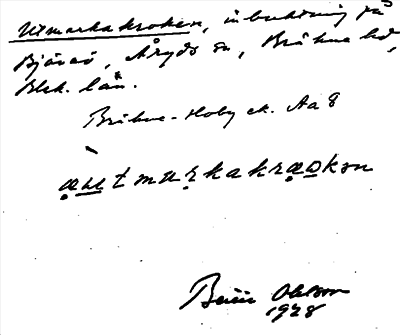 Utmarkakroken, inbuktning på
Bjärnö, Åryds sn, Bräkne hd,
Blek. län.
Bräkne-Hoby ek. Aa 8
æutmarkakræokən
Olsson
1928